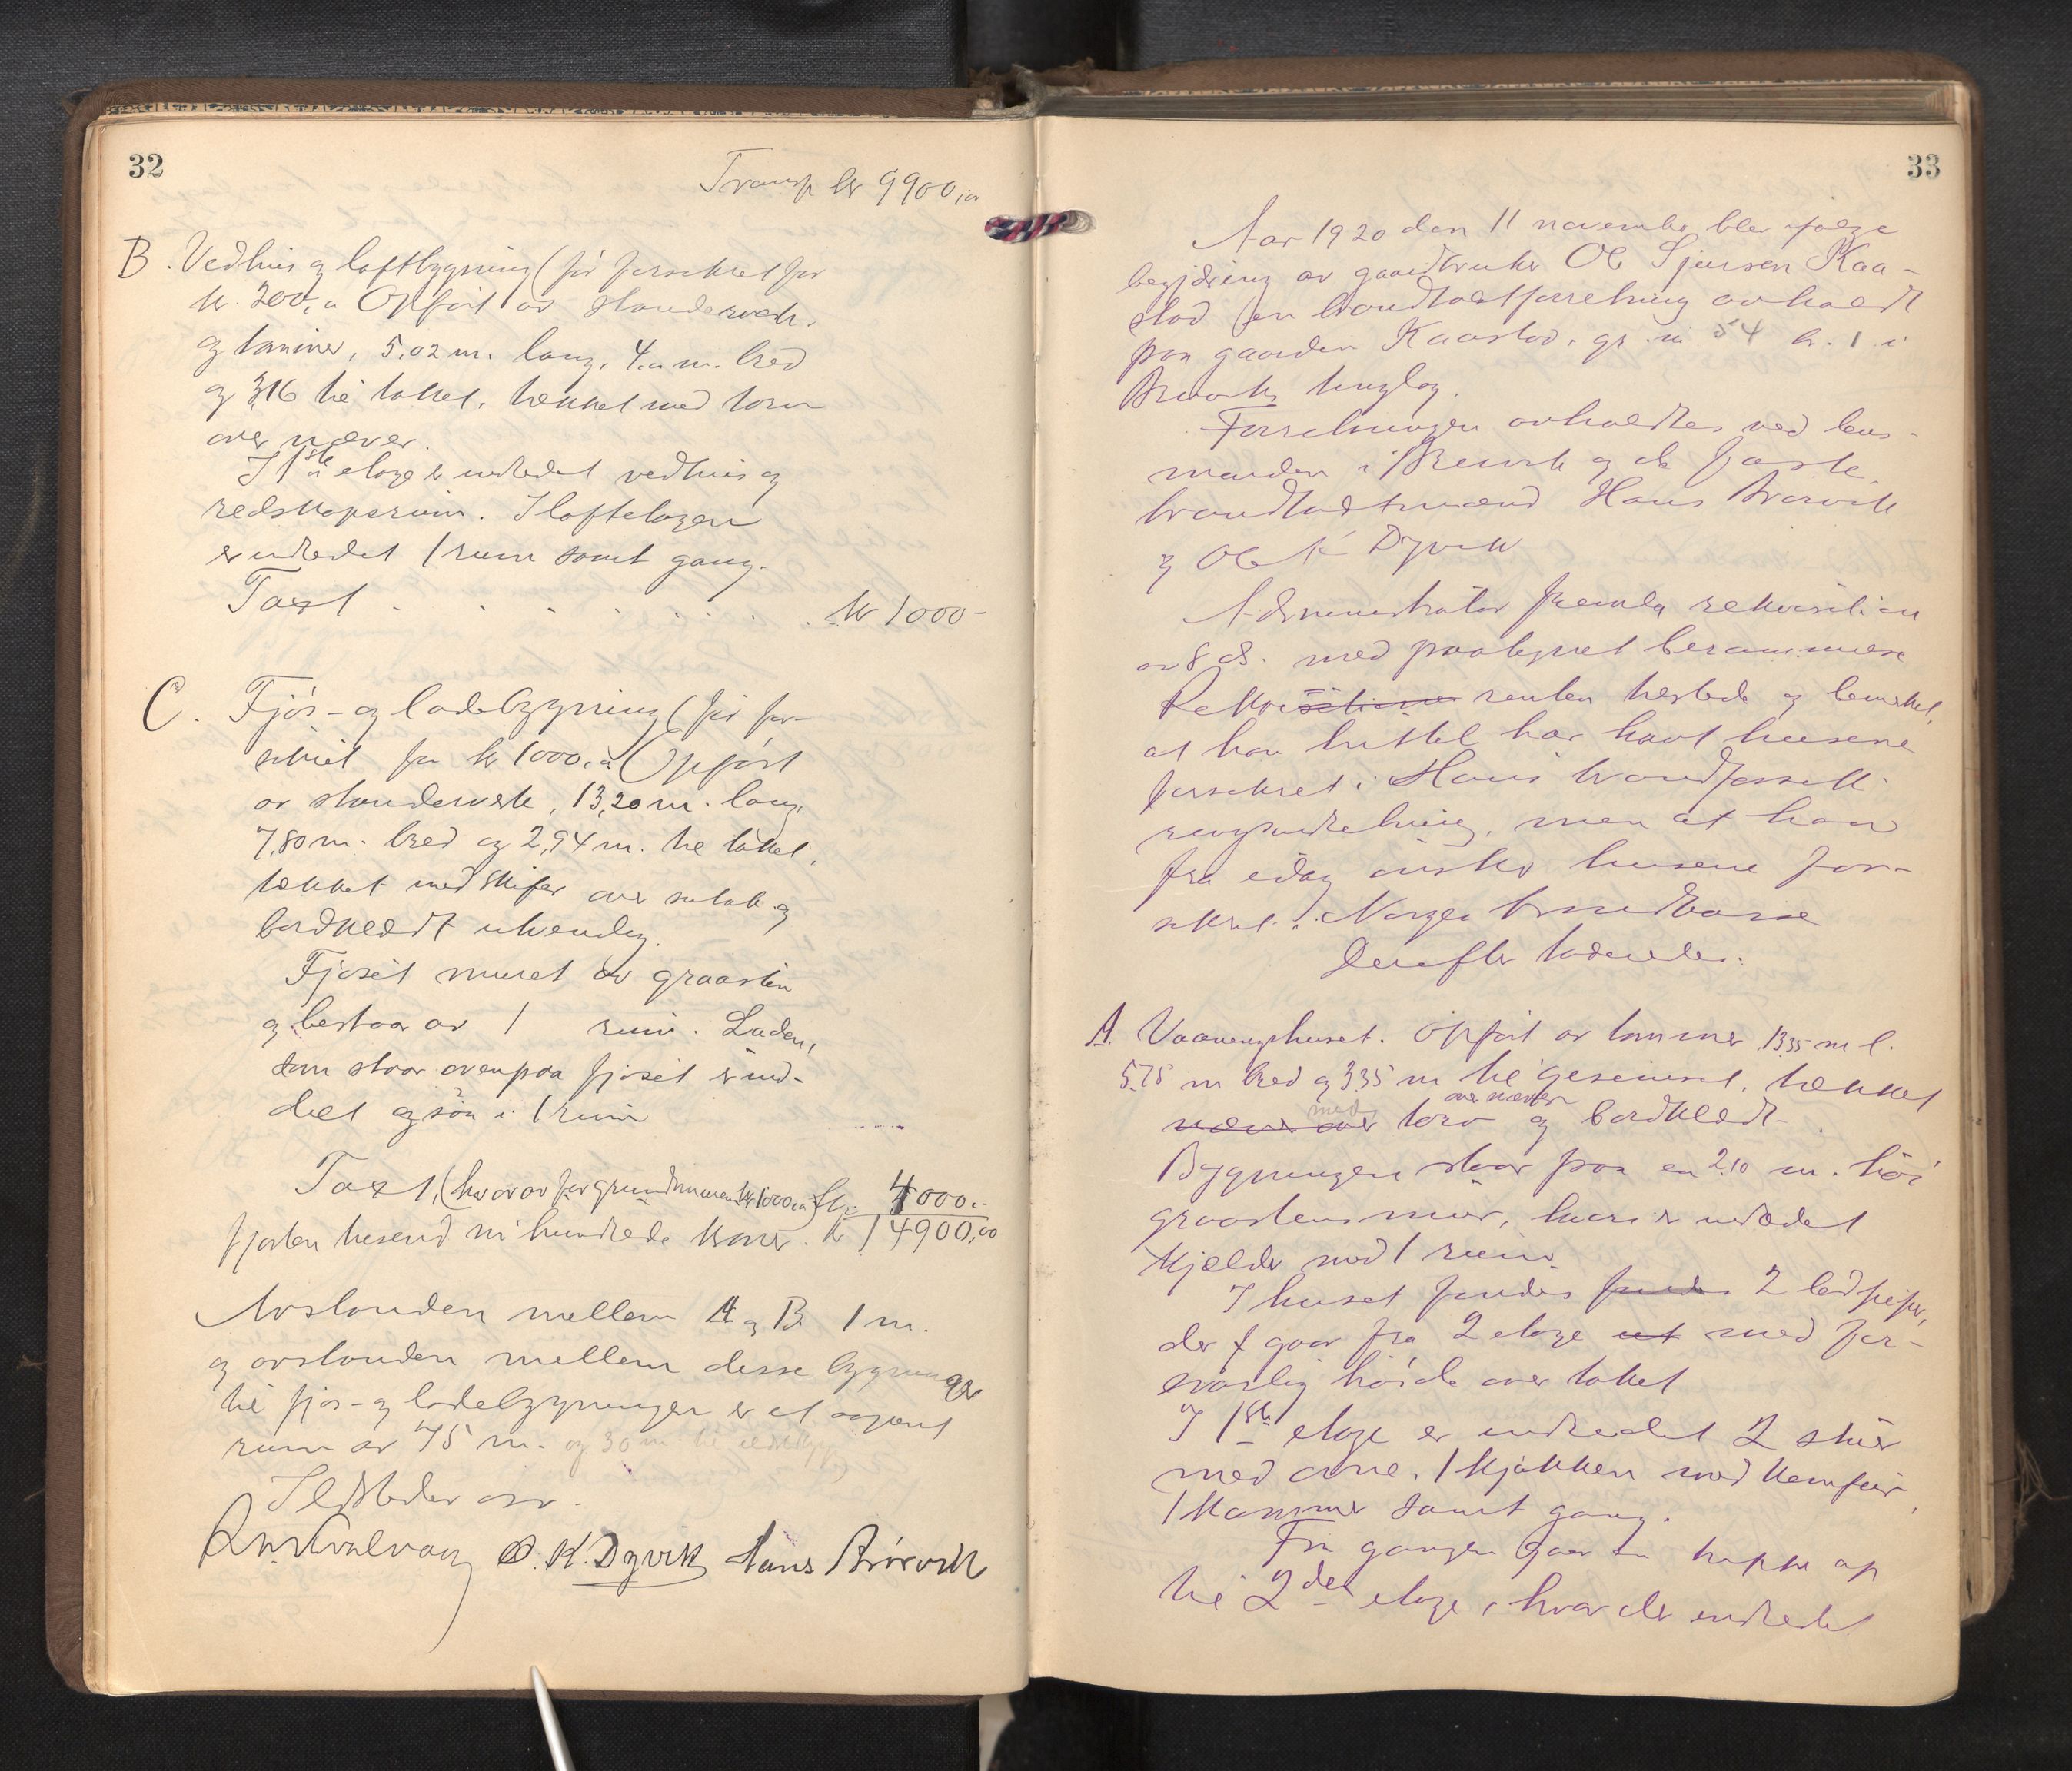 32
Transp kr 9900,00
B. Vedhus og loftbygning (før forsikret for
kr. 200,00 Opført av standerverk
og tømmer, 5,02 m. lang, 4,00 m. bred
og 3,16 til taket, tækket med torv
over næver.
I 1ste etage er indredet vedhus og
redskapsrum. I loftetagen
er indredet 1 rum samt gang.
Taxt . . . . . . . kr 1000-
C. Fjøs- og ladebygning (før for-
sikret for kr 1000,00 Opført
av standerverk, 13,20 m. lang,
7,80 m. bred og 2,94 m. til taket,
tækket med skifer over sutak og
bordklædt utvendig.
Fjøset muret av graasten
og bestaar av 1 rum. Laden,
som staar ovenpaa fjøset er ind-
delt ogsaa i 1 rum
Taxt, (hvorav for grundmuren kr 1000,00) kr. 4000.-
fjorten tusend ni hundrede kroner. kr 14900,00
Avstanden mellem A og B 1 m.
og avstanden mellem disse bygninger
til fjøs- og ladebygningen er et aapent
rum av 75 m. og 30 m. til
Ildsteder
O. K. Dyvik Hans Brørvik
33
Aar 1920 den 11 november blev ifølge
begjæring av gaardbruker Ole Sjursen Kaa-
stad en brandtakstforretning avholdt
paa gaarden Kaastad, gr. nr. 54 br. 1 i
tinglag.
Forretningen avholdtes ved lens-
manden i og de faste
brandtakstmænd Hans Brørvik
og Ole K Dyvik
Administrator fremla rekvisition
av 8 ds. med paategnet berammelse
Rekvisitionen renten tilstede og bemerket,
at han hittil har havt husene
forsikret i brandforsik-
ringsindretning, men at han
fra idag ønsker husene for-
sikret i Norges brandkasse
Derefter toderedes.
A. Vaaningshuset. Opført av tømmer 13,35 m l.
5,75 m bred og 3,35 m til gesimset, tækket
næver over med torv over næver og bordklædt.
Bygningen staar paa en 2,10 m. høi
graastensmur, hvori er indrædet
kjælder med 1 rum.
I huset findes findes 2 perper,
der f gaar fra 2 etage ut med for-
svarlig høide over taket
I 1ste etage er indredet 2 stuer
med ovne, 1 kjøkken med komfur,
1 kammer samt gang.
Fra gangen gaar en trappe op
til 2den etage, hvor der indredet